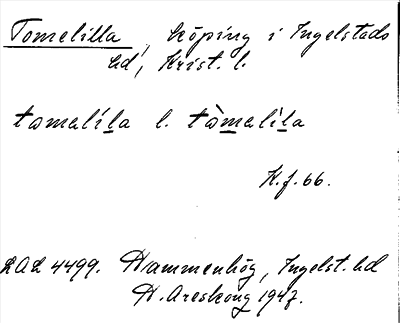 Tomelilla, köping i Ingelstads
hd, Krist. l.
tomelíla l. tòmelìla
K.f. 66.
LAL 4499. Hammenhög, Ingelst. hd
H. Areskoug 1947.